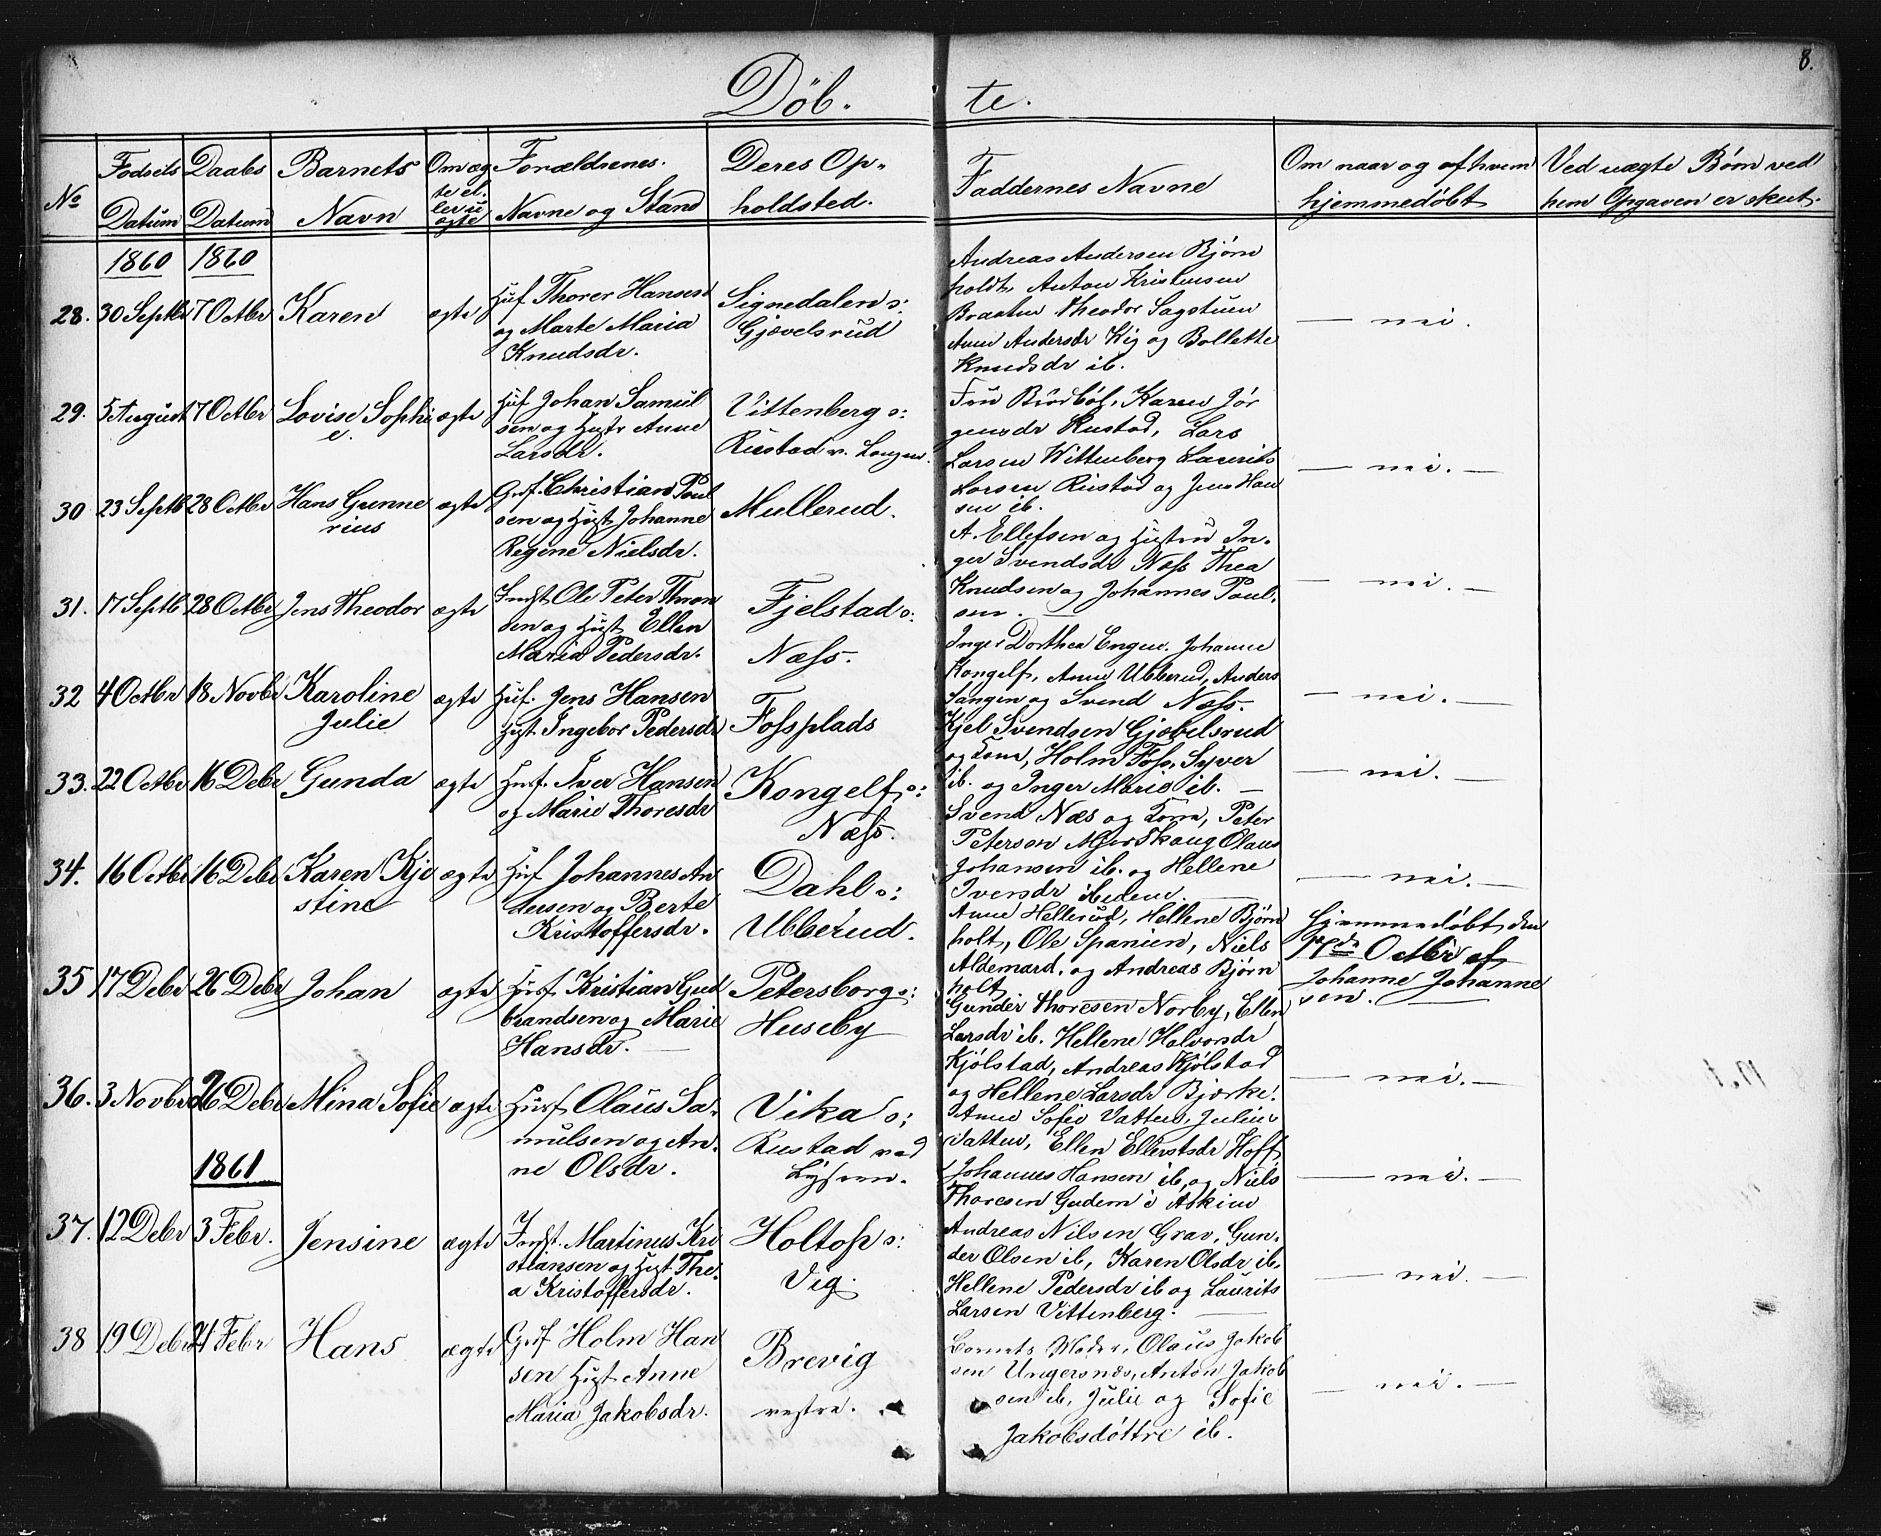 8.
Döb. te.
No
Fødsels Datum
Daabs Datum
Barnets Navn
Om æg te el. ler u ægte
Forældrenes. Navne og Stand
Deres Op. holdsted.
Faddernes Navne
Om naar og af hvem hjemmedøbt
Ved uægte Børn ved hem Opgaven er skeet.
1860 1860
28. 30 Septbr 7 Octbr Karen ægte
Huf. Thorer Hansen
og Marte Maria
Knudsdr.
Signedalen o:
Gjævelsrud
Andreas Andersen Bjørn
holdt, Anton Kristensen
Braaten Theodor Sagstuen
Anne Andersdr Vig og Bollette
Knudsdr ib.
— nei.
29. 5 August 7 Octbr Lovise Sophi
e.
ægte
Huf Johan Samuel
sen og Hustr Anne
Larsdr.
Vittenberg o:
Rustad v. Langen.
Fru Karen Jør
gensdr Rustad, Lars
Larsen Wittenberg Laurits
Larsen Rustad og Jens Han
sen ib.
— nei. —
30 23 Septb 28 Octbr Hans Gunne
rius
ægte
Grdf. Christian Poul
sen og Hust. Johanne
Regine Nielsdr.
Mullerud.
A. Ellefsen og Hustru In.
ger Svendsdr Næss Thea
Knudsen og Johannes Poul.
sen. —
— nei. —
31. 17 Septb. 28 Octbr Jens Theodor ægte
Indst. Ole Peter Thron
sen og Hust Ellen
Maria Pedersdr.
Fjelstad o:
Næss.
Inger Dorthea Engen. Johanne
Kongelf, Anne Ubberud, Anders
Langen og Svend Næss.
— nei. —
32 4 Octbr 18 Novbr Karoline
Julie
ægte
Huf. Jens Hansen
Hust. Ingebor Pedersdr
Fossplads
Kjel Svendsen Gjøbelsrud
og Kone, Holm Foss, Syver
ib. og Inger Marie ib. —
— nei. —
33. 22 Octbr 16 Debr Gunda ægte
Husf. Iver Hansen
og Marie Thoresdr
Kongelf o:
Næss.
Svend Næs og Kone, Peter
Peterson Mjorskoug Olaus
Johansen ib. og Hellene
Iversdr Heden. —
— nei. —
34. 16 Octbr 16 Debr Karen Kje
stine
ægte
Huf Johannes An
dersen og Berte
Kristoffersdr.
Dahl o:
Ubberud.
Anne Hellerud, Hellene Bjørn
holt, Ole Spanien, Niels
Aldemard, og Andreas Bjørn
holt
Hjemmedøbt den
17de Octbr af
Johanne Johanne
sen. —
35 17 Debr 26 Debr Johan ægte
Husf. Kristian Gud
brandsen og Marie
Hansdr. —
Petersborg o:
Huseby
Gunder Thoresen Norby, Ellen
Larsdr ib. Hellene Halvorsdr
Kjölstad, Andreas Kjölstad
og Hellene Larsdr Bjørke.
— nei. —
36. 3 Novbr 26 Debr Mina Sofie ægte
Husf Olaus Sa.
mulsen og An.
ne Olsdr.
Vika o:
Rustad ved
Lysern.
Anne Sofie Vatten, Julin
Vatten, Ellen Hoff,
Johannes Hansen ib, og Niels
Thoresen Gudem i Askim
— nei. —
1861
37. 12 Debr 3 Febr. Jensine ægte
Indst. Martinus Kri
stiansen og Hust The.
a Kristoffersdr.
Holtop o:
Vig.
Andreas Nilsen Grav, Gun.
der Olsen ib, Karen Olsdr ib,
Hellene Pedersdr ib og Laurits
Larsen Vittenberg. —
— nei. —
38 19 Debr 21 Febr Hans ægte
Grdf Holm Han
sen Hust Anne
Maria Jakobsdr.
Brevig
vestre.
Barnets Moder, Olaus Jakob
sen Ungersnæs, Anton Jakob
sen ib, Julie og Sofie
Jakobsdöttre ib.
— nei. —